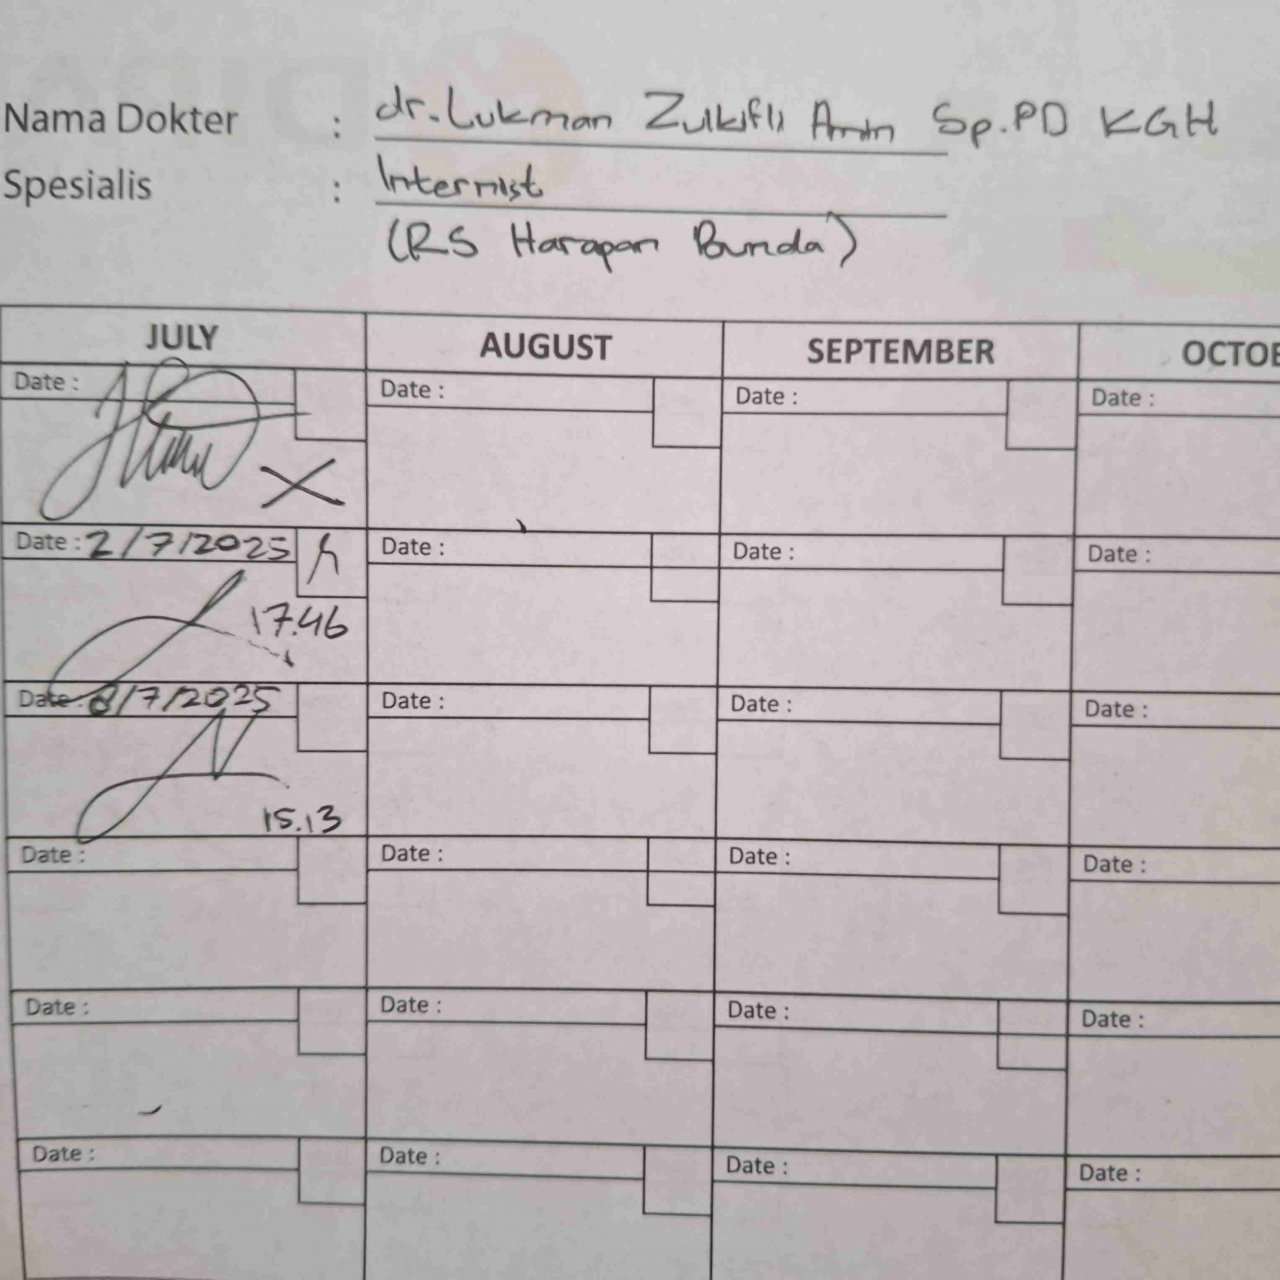 Nama Dokter : dr. Lukman Zulkifli Amin Sp.PD KGH
Spesialis : Internist
(RS Harapan Bunda)
JULY AUGUST SEPTEMBER
Date : Date : Date : Date :
X
Date : 2/7/2025 Date : Date : Date :
17.46
Date : 8/7/2025 Date : Date : Date :
15.13
Date : Date : Date : Date :
Date : Date : Date : Date :
Date : Date : Date : Date :